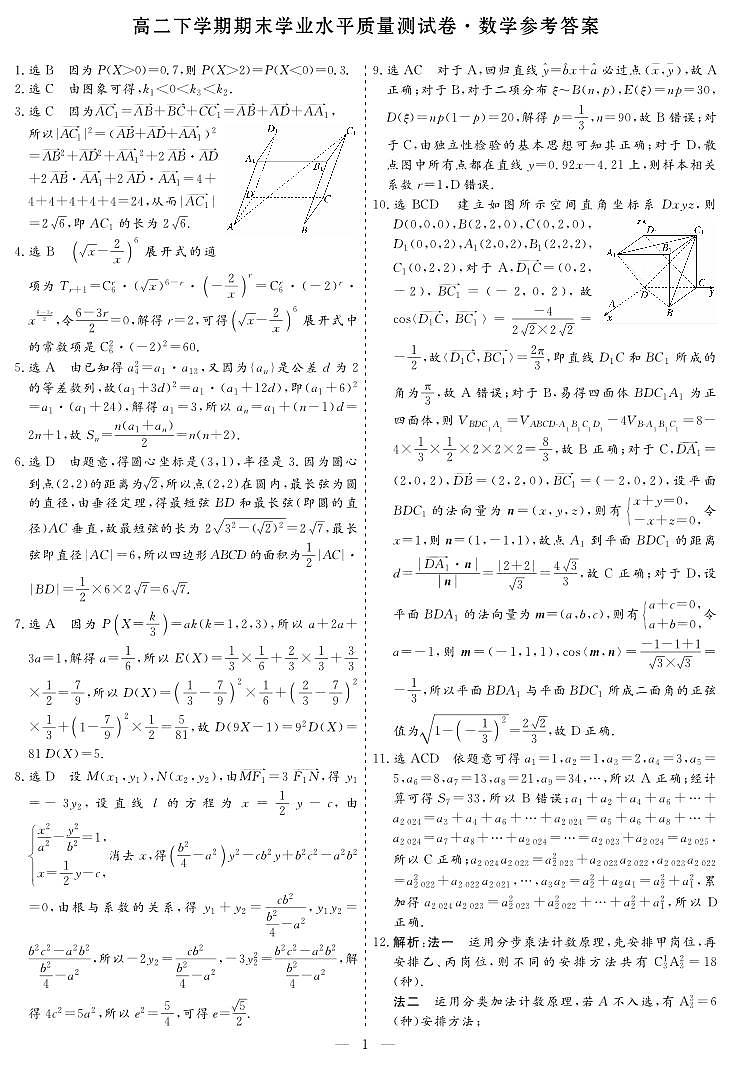 高二下学期期末学业水平质量测试卷·数学参考答案
1. 选 B 因为 P(X>0)=0.7,则 P(X>2)=P(X<0)=0.3.
2. 选 C 由图象可得,k₁<0<k₃<k₂.
3. 选 C 因为AC₁=AB+BC+CC₁=AB+AD+AA₁,
所以|AC₁|²=(AB+AD+AA₁)²
=AB²+AD²+AA₁²+2 AB·AD
+2 AB·AA₁+2 AD·AA₁=4+
4+4+4+4+4=24,从而|AC₁|
=2√6,即 AC₁ 的长为 2√6.
D₁ C₁
A₁ B₁
D C
A B
4. 选 B (√x-2/x)⁶ 展开式的通
项为 Tᵣ₊₁=C₆ʳ·(√x)⁶⁻ʳ·(-2/x)ʳ=C₆ʳ·(-2)ʳ·
x^((6-3r)/2),令(6-3r)/2=0,解得 r=2,可得(√x-2/x)⁶ 展开式中
的常数项是 C₆²·(-2)²=60.
5. 选 A 由已知得 a₄²=a₁·a₁₃,又因为{aₙ}是公差 d 为 2
的等差数列,故(a₁+3d)²=a₁·(a₁+12d),即(a₁+6)²
=a₁·(a₁+24),解得 a₁=3,所以 aₙ=a₁+(n-1)d=
2n+1,故 Sₙ=n(a₁+aₙ)/2=n(n+2).
6. 选 D 由题意,得圆心坐标是(3,1),半径是 3.因为圆心
到点(2,2)的距离为√2,所以点(2,2)在圆内,最长弦为圆
的直径,由垂径定理,得最短弦 BD 和最长弦(即圆的直
径)AC 垂直,故最短弦的长为 2√(3²-(√2)²)=2√7,最长
弦即直径|AC|=6,所以四边形 ABCD 的面积为1/2|AC|·
|BD|=1/2×6×2√7=6√7.
7. 选 A 因为 P(X=k/3)=ak(k=1,2,3),所以 a+2a+
3a=1,解得 a=1/6,所以 E(X)=1/3×1/6+2/3×1/3+3/3
×1/2=7/9,所以 D(X)=(1/3-7/9)²×1/6+(2/3-7/9)²
×1/3+(1-7/9)²×1/2=5/81,故 D(9X-1)=9²D(X)=
81 D(X)=5.
8. 选 D 设 M(x₁,y₁),N(x₂,y₂),由MF₁=3 F₁N,得 y₁
=-3y₂,设直线 l 的方程为 x=1/2 y-c,由
{x²/a²-y²/b²=1,
x=1/2 y-c,
消去 x,得(b²/4-a²)y²-cb²y+b²c²-a²b²
=0,由根与系数的关系,得 y₁+y₂=cb²/(b²/4-a²),y₁y₂=
(b²c²-a²b²)/(b²/4-a²),所以-2y₂=cb²/(b²/4-a²),-3y₂²=(b²c²-a²b²)/(b²/4-a²),解
得 4c²=5a²,所以 e²=5/4,可得 e=√5/2.
9. 选 AC 对于 A,回归直线 ŷ=b̂x+â 必过点(x̄,ȳ),故 A
正确;对于 B,对于二项分布 ξ~B(n,p),E(ξ)=np=30,
D(ξ)=np(1-p)=20,解得 p=1/3,n=90,故 B 错误;对
于 C,由独立性检验的基本思想可知其正确;对于 D,散
点图中所有点都在直线 y=0.92x-4.21 上,则样本相关
系数 r=1,D 错误.
10. 选 BCD 建立如图所示空间直角坐标系 Dxyz,则
D(0,0,0),B(2,2,0),C(0,2,0),
D₁(0,0,2),A₁(2,0,2),B₁(2,2,2),
C₁(0,2,2),对于 A,D₁C=(0,2,
-2),BC₁=(-2,0,2),故
cos⟨D₁C,BC₁⟩=-4/(2√2×2√2)=
D C₁
A₁ B₁
D C y
A B
x
-1/2,故⟨D₁C,BC₁⟩=2π/3,即直线 D₁C 和 BC₁ 所成的
角为π/3,故 A 错误;对于 B,易得四面体 BDC₁A₁ 为正
四面体,则 V BDC₁A₁=V ABCD-A₁B₁C₁D₁-4V B-A₁B₁C₁=8-
4×1/3×1/2×2×2×2=8/3,故 B 正确;对于 C,DA₁=
(2,0,2),DB=(2,2,0),BC₁=(-2,0,2),设平面
BDC₁ 的法向量为 n=(x,y,z),则有{x+y=0, -x+z=0,令
x=1,则 n=(1,-1,1),故点 A₁ 到平面 BDC₁ 的距离
d=|DA₁·n|/|n|=|2+2|/√3=4√3/3,故 C 正确;对于 D,设
平面 BDA₁ 的法向量为 m=(a,b,c),则有{a+c=0, a+b=0,令
a=-1,则 m=(-1,1,1),cos⟨m,n⟩=(-1-1+1)/(√3×√3)=
-1/3,所以平面 BDA₁ 与平面 BDC₁ 所成二面角的正弦
值为√(1-(-1/3)²)=2√2/3,故 D 正确.
11. 选 ACD 依题意可得 a₁=1,a₂=1,a₃=2,a₄=3,a₅=
5,a₆=8,a₇=13,a₈=21,a₉=34,…,所以 A 正确;经计
算可得 S₇=33,所以 B 错误;a₁+a₂+a₄+a₆+…+
a₂₀₂₄=a₃+a₄+a₆+…+a₂₀₂₄=a₅+a₆+a₈+…+
a₂₀₂₄=a₇+a₈+…+a₂₀₂₄=…=a₂₀₂₃+a₂₀₂₄=a₂₀₂₅,
所以 C 正确;a₂₀₂₄a₂₀₂₃=a²₂₀₂₃+a₂₀₂₃a₂₀₂₂,a₂₀₂₃a₂₀₂₂
=a²₂₀₂₂+a₂₀₂₂a₂₀₂₁,…,a₃a₂=a₂²+a₂a₁=a₂²+a₁²,累
加得 a₂₀₂₄a₂₀₂₃=a²₂₀₂₃+a²₂₀₂₂+…+a₂²+a₁²,所以 D
正确.
12. 解析:法一 运用分步乘法计数原理,先安排甲岗位,再
安排乙、丙岗位,则不同的安排方法共有 C₃¹A₃²=18
(种).
法二 运用分类加法计数原理,若 A 不入选,有 A₃³=6
(种)安排方法;
— 1 —